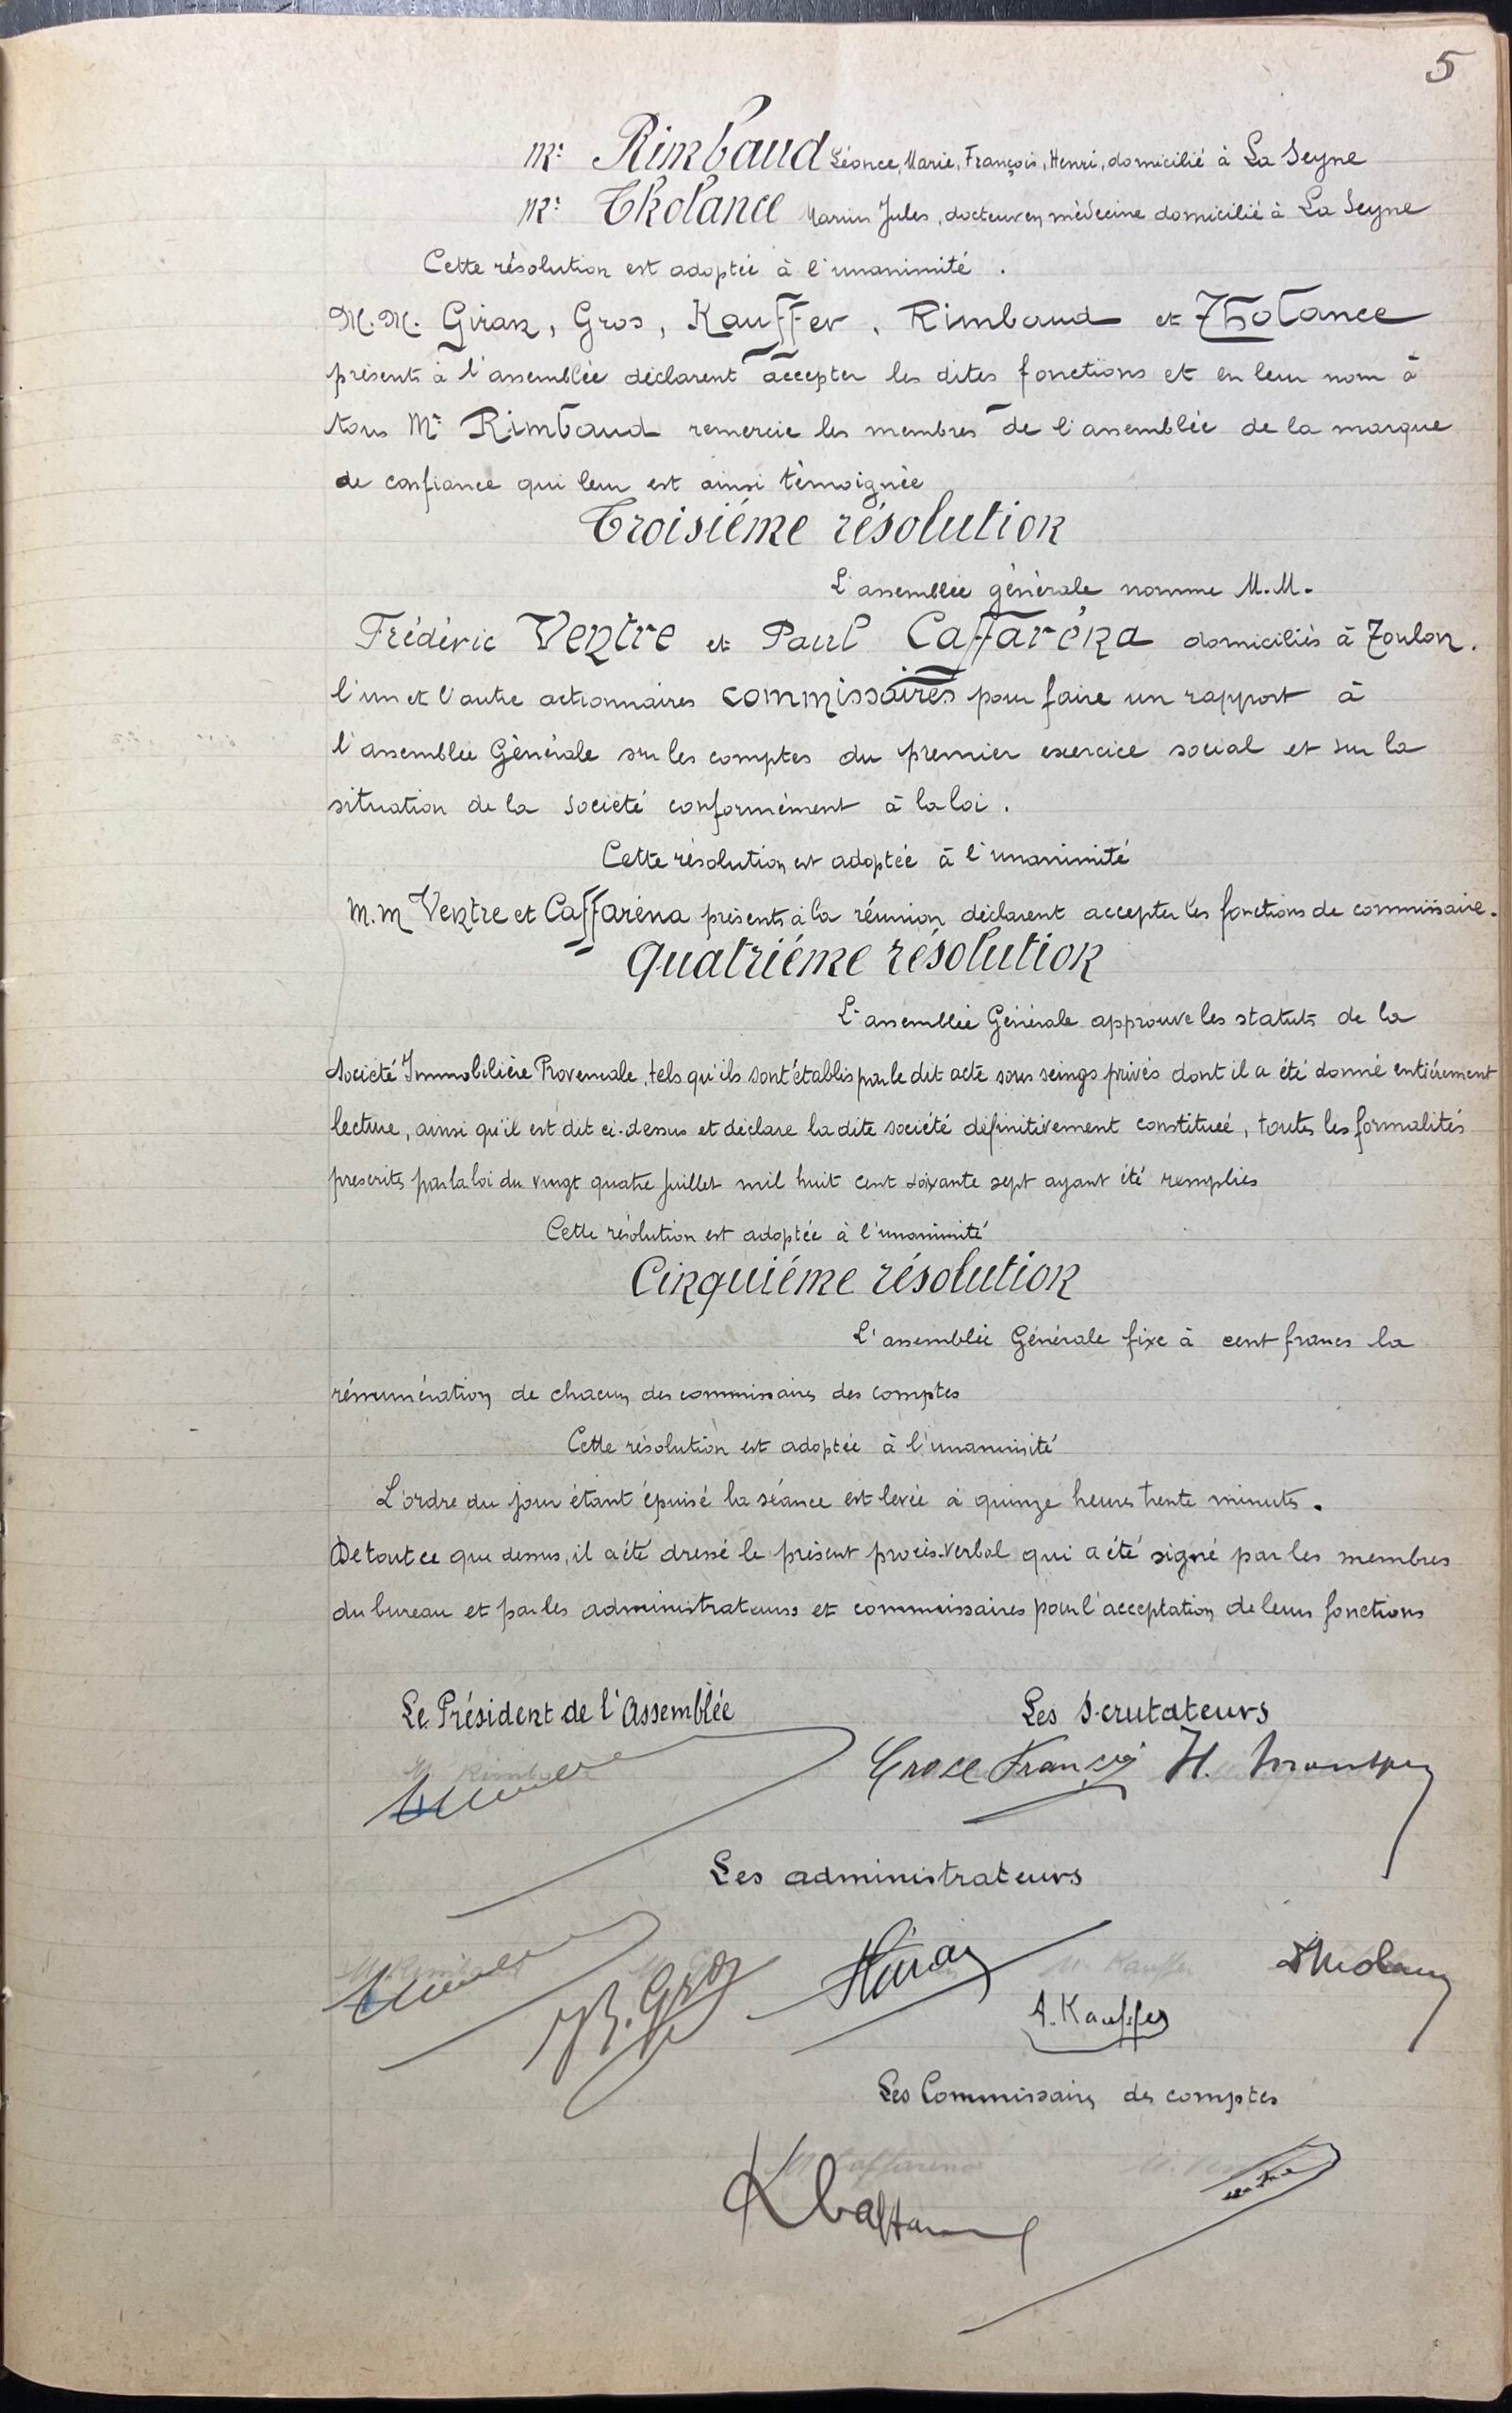 5
Mr Rimbaud Léonce, Marie, François, Henri, domicilié à La Seyne
Mr Tholance Marius Jules, docteur en médecine domicilié à La Seyne
Cette résolution est adoptée à l'unanimité.
M.M. Giran, Gros, Kauffer, Rimbaud et Tholance
présents à l'assemblée déclarent accepter les dites fonctions et en leur nom à
tous Mr Rimbaud remercie les membres de l'assemblée de la marque
de confiance qui leur est ainsi témoignée
Troisiéme résolution
L'assemblée générale nomme M.M.
Frédéric Ventre et Paul Cafféréna domiciliés à Toulon.
l'un et l'autre actionnaires commissaires pour faire un rapport à
l'assemblée Générale sur les comptes du premier exercice social et sur la
situation de la société conformément à la loi.
Cette résolution est adoptée à l'unanimité
M.M Ventre et Caffaréna présents à la réunion déclarent accepter les fonctions de commissaire.
Quatriéme résolution
L'assemblée Générale approuve les statuts de la
Société Immobilière Provencale, tels qu'ils sont établis par le dit acte sous seings privés dont il a été donné entiérement
lecture, ainsi qu'il est dit ci-dessus et déclare la dite société définitivement constituée, toutes les formalités
prescrites par la loi du vingt quatre juillet mil huit cent soixante sept ayant été remplies
Cette résolution est adoptée à l'unanimité
Cinquiéme résolution
L'assemblée Générale fixe à cent francs la
rémunération de chacun des commissaires des comptes
Cette résolution est adoptée à l'unanimité
L'ordre du jour étant épuisé la séance est levée à quinze heures trente minutes.
De tout ce que dessus, il a été dressé le présent procès-verbal qui a été signé par les membres
du bureau et par les administrateurs et commissaires pour l'acceptation de leurs fonctions
Le Président de l'Assemblée Les Scrutateurs
M. Rimbaud Croce François H.
Les administrateurs
M. Rimbaud Gros Giran M. Kauffer Tholance
A. Kauffer
Les Commissaires des comptes
M. Caffarena M. Ventre